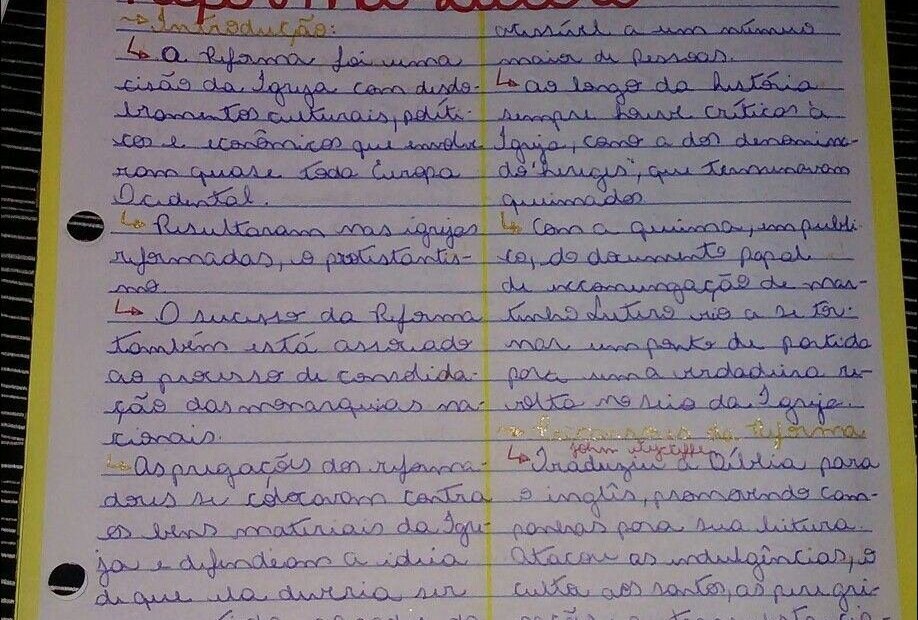 → Introdução:
↳ A Reforma foi uma
cisão da Igreja com desdo-
bramentos culturais, políti-
cos e econômicos que envolve
ram quase toda Europa
Ocidental.
↳ Resultaram nas igrejas
reformadas, o protestantis-
mo
↳ O sucesso da Reforma
também está associado
ao processo de consolida-
ção das monarquias na-
cionais.
↳ As pregações dos reforma-
dores se colocavam contra
os bens materiais da Igre-
ja e defendiam a ideia
de que ela deveria ser
acessível a um número
maior de pessoas.
↳ ao longo da história
sempre houve críticas à
Igreja, como a dos denomina-
do "hereges", que terminavam
queimados
↳ Com a queima, em públi-
co, do documento papal
de excomungação de Mar-
tinho Lutero vio a se tor-
nar um ponto de partida
para uma verdadeira re-
volta no seio da Igreja.
da Reforma
John Wycliffe
↳ Traduziu a Bíblia para
o inglês, promovendo cam-
panhas para sua leitura.
Atacou as indulgências, o
culto aos santos, as peregri